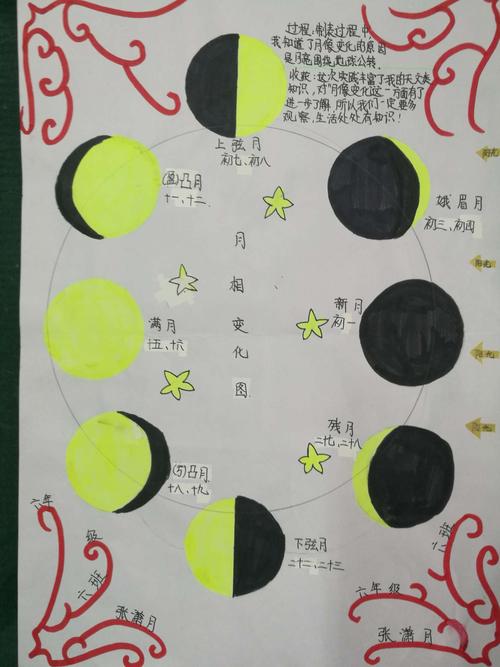 过程:制表过程中,
我知道了月像变化的原因
是月亮围绕地球公转。
收获:这次实践丰富了我的天文类
知识,对"月像变化这一方面有了
进一步了解,所以我们一定要多
观察,生活处处有知识!
上弦月
初七、初八
(盈)凸月
十一、十二
娥眉月
初三、初四
阳光
阳光
阳光
阳光
月相变化图
新月
初一
满月
十五、十六
残月
二十七、二十八
(亏)凸月
十八、十九
下弦月
二十二、二十三
六年级
六班
张潇月
六年级
六班
张潇月